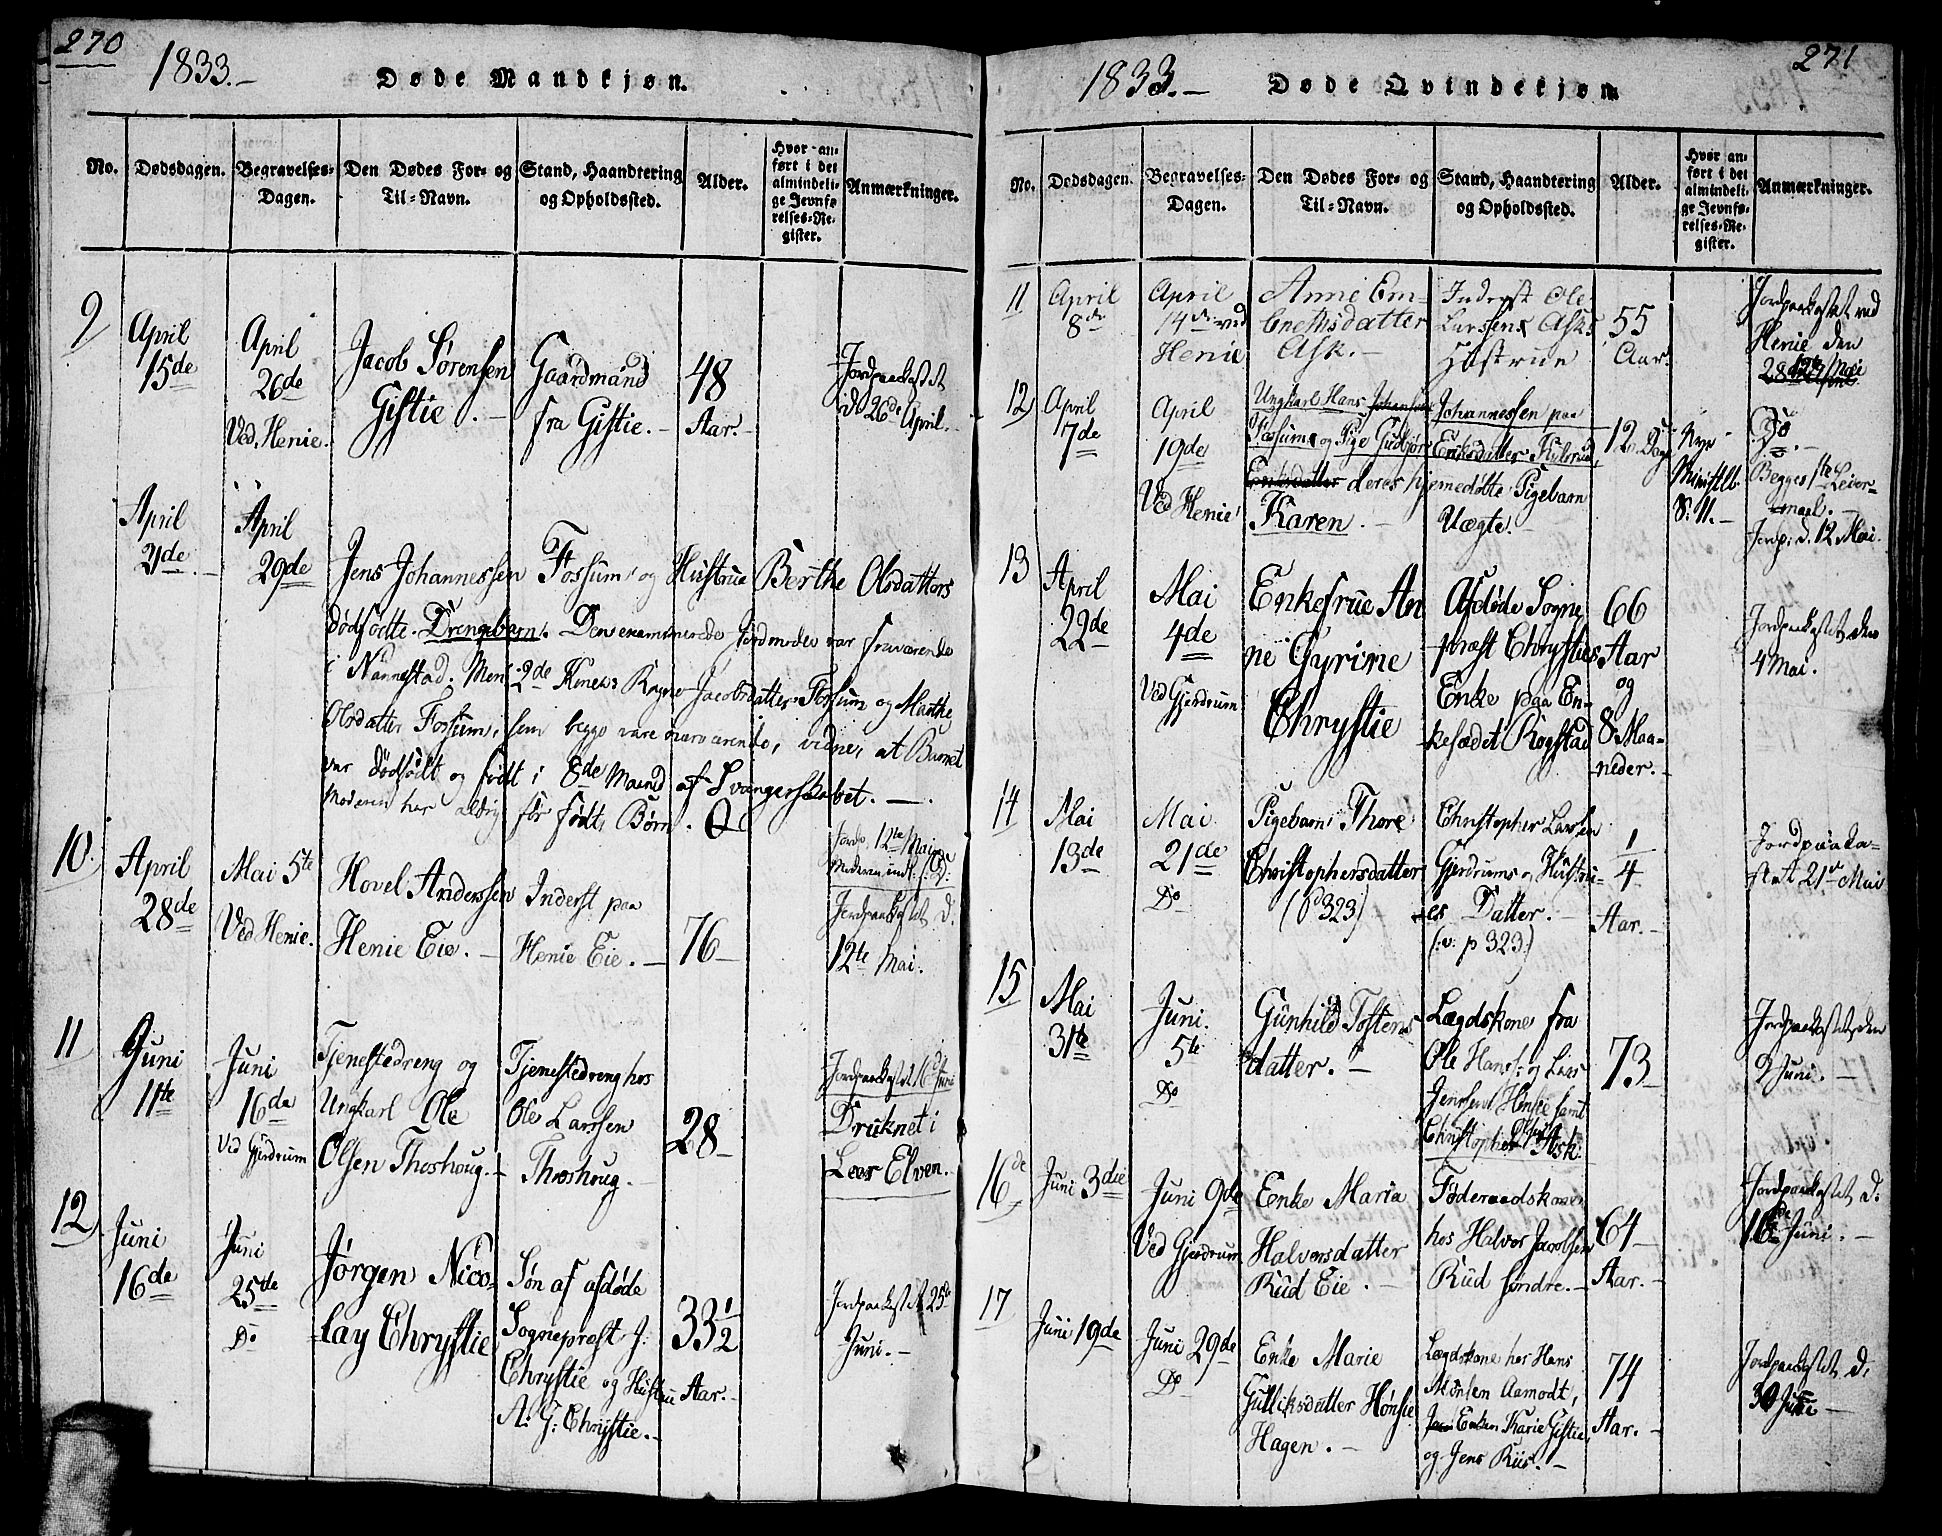 270
1833.-
Døde Mandkjøn.
No.
Dødsdagen.
Begravelses-
Dagen.
Den Dødes For- og
Til-Navn.
Stand, Haandtering
og Opholdssted.
Alder.
Hvor an-
ført i det
almindeli-
ge Jevnfø-
relses-Re-
gister.
Anmærkninger.
9
April
15de
April
26de
Ved Henie.
Jacob Sørensen
Gistie.-
Gaardmand
fra Gistie.-
48
Aar.-
Jordpaakastet
d: 26de April.-
April
21de
April
29de
Jens Johannessen Fossum og Hustrue Berthe Olsdatters
dødfødte Drengebarn. Den examinerede Jordmoder var fraværende
i Nannestad. Men 2de Koner: Ragne Jacobsdatter Fossum og Marthe
Olsdatter Fossum, som begge vare nærværende, vidner, at Barnet
var dødfødt og født i 8de Maaned af Svangerskabet.-
Moderen har aldrig før født Børn. 0
10.
April
28de
Mai 5te
Ved Henie.
Hovel Anderssen
Henie Eie.-
Inderst paa
Henie Eie.-
76-
Jordp. 12te Mai
Jordpaakastet d.
12te Mai.
11
Juni
11te
Juni
16de
Ved Gjerdrum
Tjenestedreng og
Ungkarl Ole
Olsen Thoshoug.-
Tjenestedreng hos
Ole Larssen
Thoshoug.-
28-
Jordpaakastet 16de Juni
Druknet i
Leer Elven.
12
Juni
16de
Juni
25de
Do
Jørgen Nico-
lay Chrystie
Søn af afdøde
Sognepræst J:
Chrystie og Hustrue
A: G: Chrystie.-
33 1/2
Aar.-
Jordpaakastet 25de
Juni.-
271
1833.-
Døde Qvindekjøn
No.
Dødsdagen.
Begravelses-
Dagen.
Den Dødes For- og
Til-Navn.
Stand, Haandtering
og Opholdssted.
Alder.
Hvor an-
ført i det
almindeli-
ge Jevnfø-
relses-Re-
gister.
Anmærkninger.
11
April
8de
April
14de ved
Henie
Anne Em-
bretsdatter
Ask.-
Inderst Ole
Larssens Ask
Hustrue
55
Aar.
Jordpaakastet ved
Henie den
12te Mai
12
April
7de
April
19de
Ved Henie
Ungkarl Hans Johansen Johannessen paa
Fossum og Pige Gudbjør Eriksdatter Kulsrud,
deres hjemedøbte Pigebarn
Karen.- Uægte.-
12 Dage
Nye
Ministlb.
S: 11.-
Do
Begges 1ste Leier-
maal.-
Jordp: d. 12 Mai.
13
April
22de
Mai
4de
Ved Gjerdrum
Enkefrue An
ne Gyrine
Chrystie
Afdøde Sogne
præst Chrysties
Enke paa En-
kesædet Rogstad
66
Aar
og
8 Maa-
neder.-
Jordpaakastet den
4 Mai.
14
Mai
13de
Mai
21de
Do
Pigebarn Thore
Christophersdatter
(P 323)
Christopher Larsen
Gjerdrums og Hustru-
es Datter.-
(:v: p 323:)
1/4
Aar.-
Jordpaaka-
stet 21de Mai
15
Mai
31te
Juni
5te
Do
Gunhild Tostens
datter.-
Lægdskone fra
Ole Hans: og Lars
Jenssen Hønsie samt
Christopher Olsen Ask.
73-
Jordpaakastet den
9 Juni.-
16de
Juni 3die
Juni 9de
Ved Gjerdrum
Enke Maria
Halvorsdatter
Rud Eie.-
Føderaadskone
hos Halvor Jacobsen
Rud søndre.-
64
Aar.-
Jordpaakastet d.
16de Juni.-
17
Juni 19de
Juni 29de
Do
Enke Marie
Gulliksdatter Hønsie
Hagen.-
Lægdskone hos Hans
Monsen Aamodt,
Enken Karie Gistie,
og Jens Riis.-
74
Aar.-
Jordpaakastet d.
30 Juni-